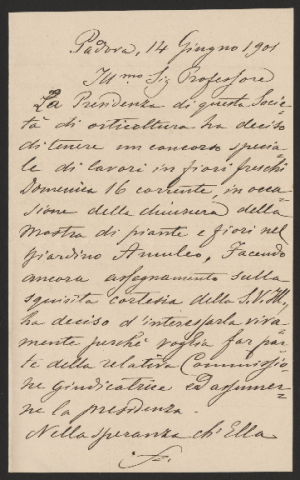 Padova, 14 Giugno 1901
Ill.mo Sig Professore
La Presidenza di questa Socie=
tà di orticoltura ha deciso
di tenere un concorso specia=
le di lavori in fiori freschi
Domenica 16 corrente, in occa=
sione della chiusura della
mostra di piante e fiori nel
giardino Amuleo, Facendo
ancora assegnamento sulla
squisita cortesia della S.V. Ill,
ha deciso d'interessarla viva=
mente perchè voglia far par=
te della relativa Commissio=
ne giudicatrice ed assumer=
ne la presidenza.
Nella speranza ch'Ella